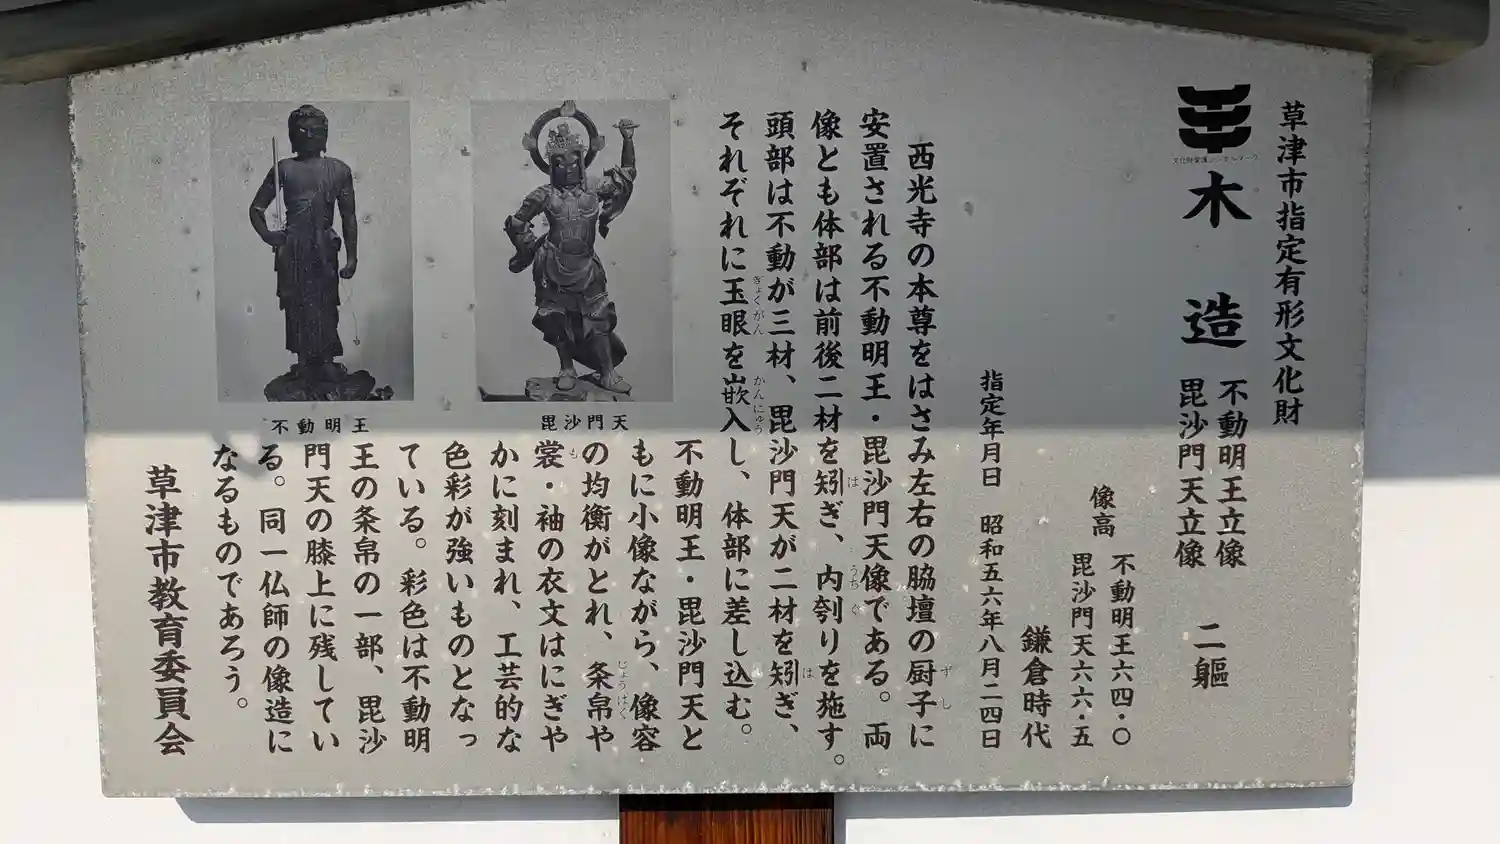 草津市指定有形文化財
文化財愛護シンボルマーク
木造 不動明王立像 毘沙門天立像 二軀
像高 不動明王六四・〇 毘沙門天六六・五
鎌倉時代
指定年月日 昭和五六年八月二四日
西光寺の本尊をはさみ左右の脇壇の厨子に
ずし
安置される不動明王・毘沙門天像である。両
像とも体部は前後二材を矧ぎ、内刳りを施す。
は うちぐ
頭部は不動が三材、毘沙門天が二材を矧ぎ、
は
それぞれに玉眼を嵌入し、体部に差し込む。
ぎょくがん かんにゅう
不動明王・毘沙門天と
もに小像ながら、像容
の均衡がとれ、条帛や
じょうはく
裳・袖の衣文はにぎや
も
かに刻まれ、工芸的な
色彩が強いものとなっ
ている。彩色は不動明
王の条帛の一部、毘沙
門天の膝上に残してい
る。同一仏師の像造に
なるものであろう。
草津市教育委員会
毘沙門天
不動明王